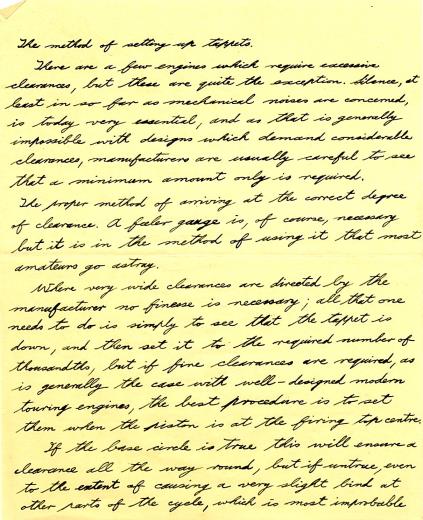 The method of setting up tappets.
There are a few engines which require excessive
clearances, but these are quite the exception. Silence, at
least in so far as mechanical noises are concerned,
is today very essential, and as that is generally
impossible with designs which demand considerable
clearances, manufacturers are usually careful to see
that a minimum amount only is required.
The proper method of arriving at the correct degree
of clearance. A feeler gauge is, of course, necessary
but it is in the method of using it that most
amateurs go astray.
Where very wide clearances are directed by the
manufacturer no finesse is necessary; all that one
needs to do is simply to see that the tappet is
down, and then set it to the required number of
thousandths, but if fine clearances are required, as
is generally the case with well-designed modern
touring engines, the best procedure is to set
them when the piston is at the firing top centre.
If the base circle is true this will ensure a
clearance all the way round, but if untrue, even
to the extent of causing a very slight bind at
other parts of the cycle, which is most improbable